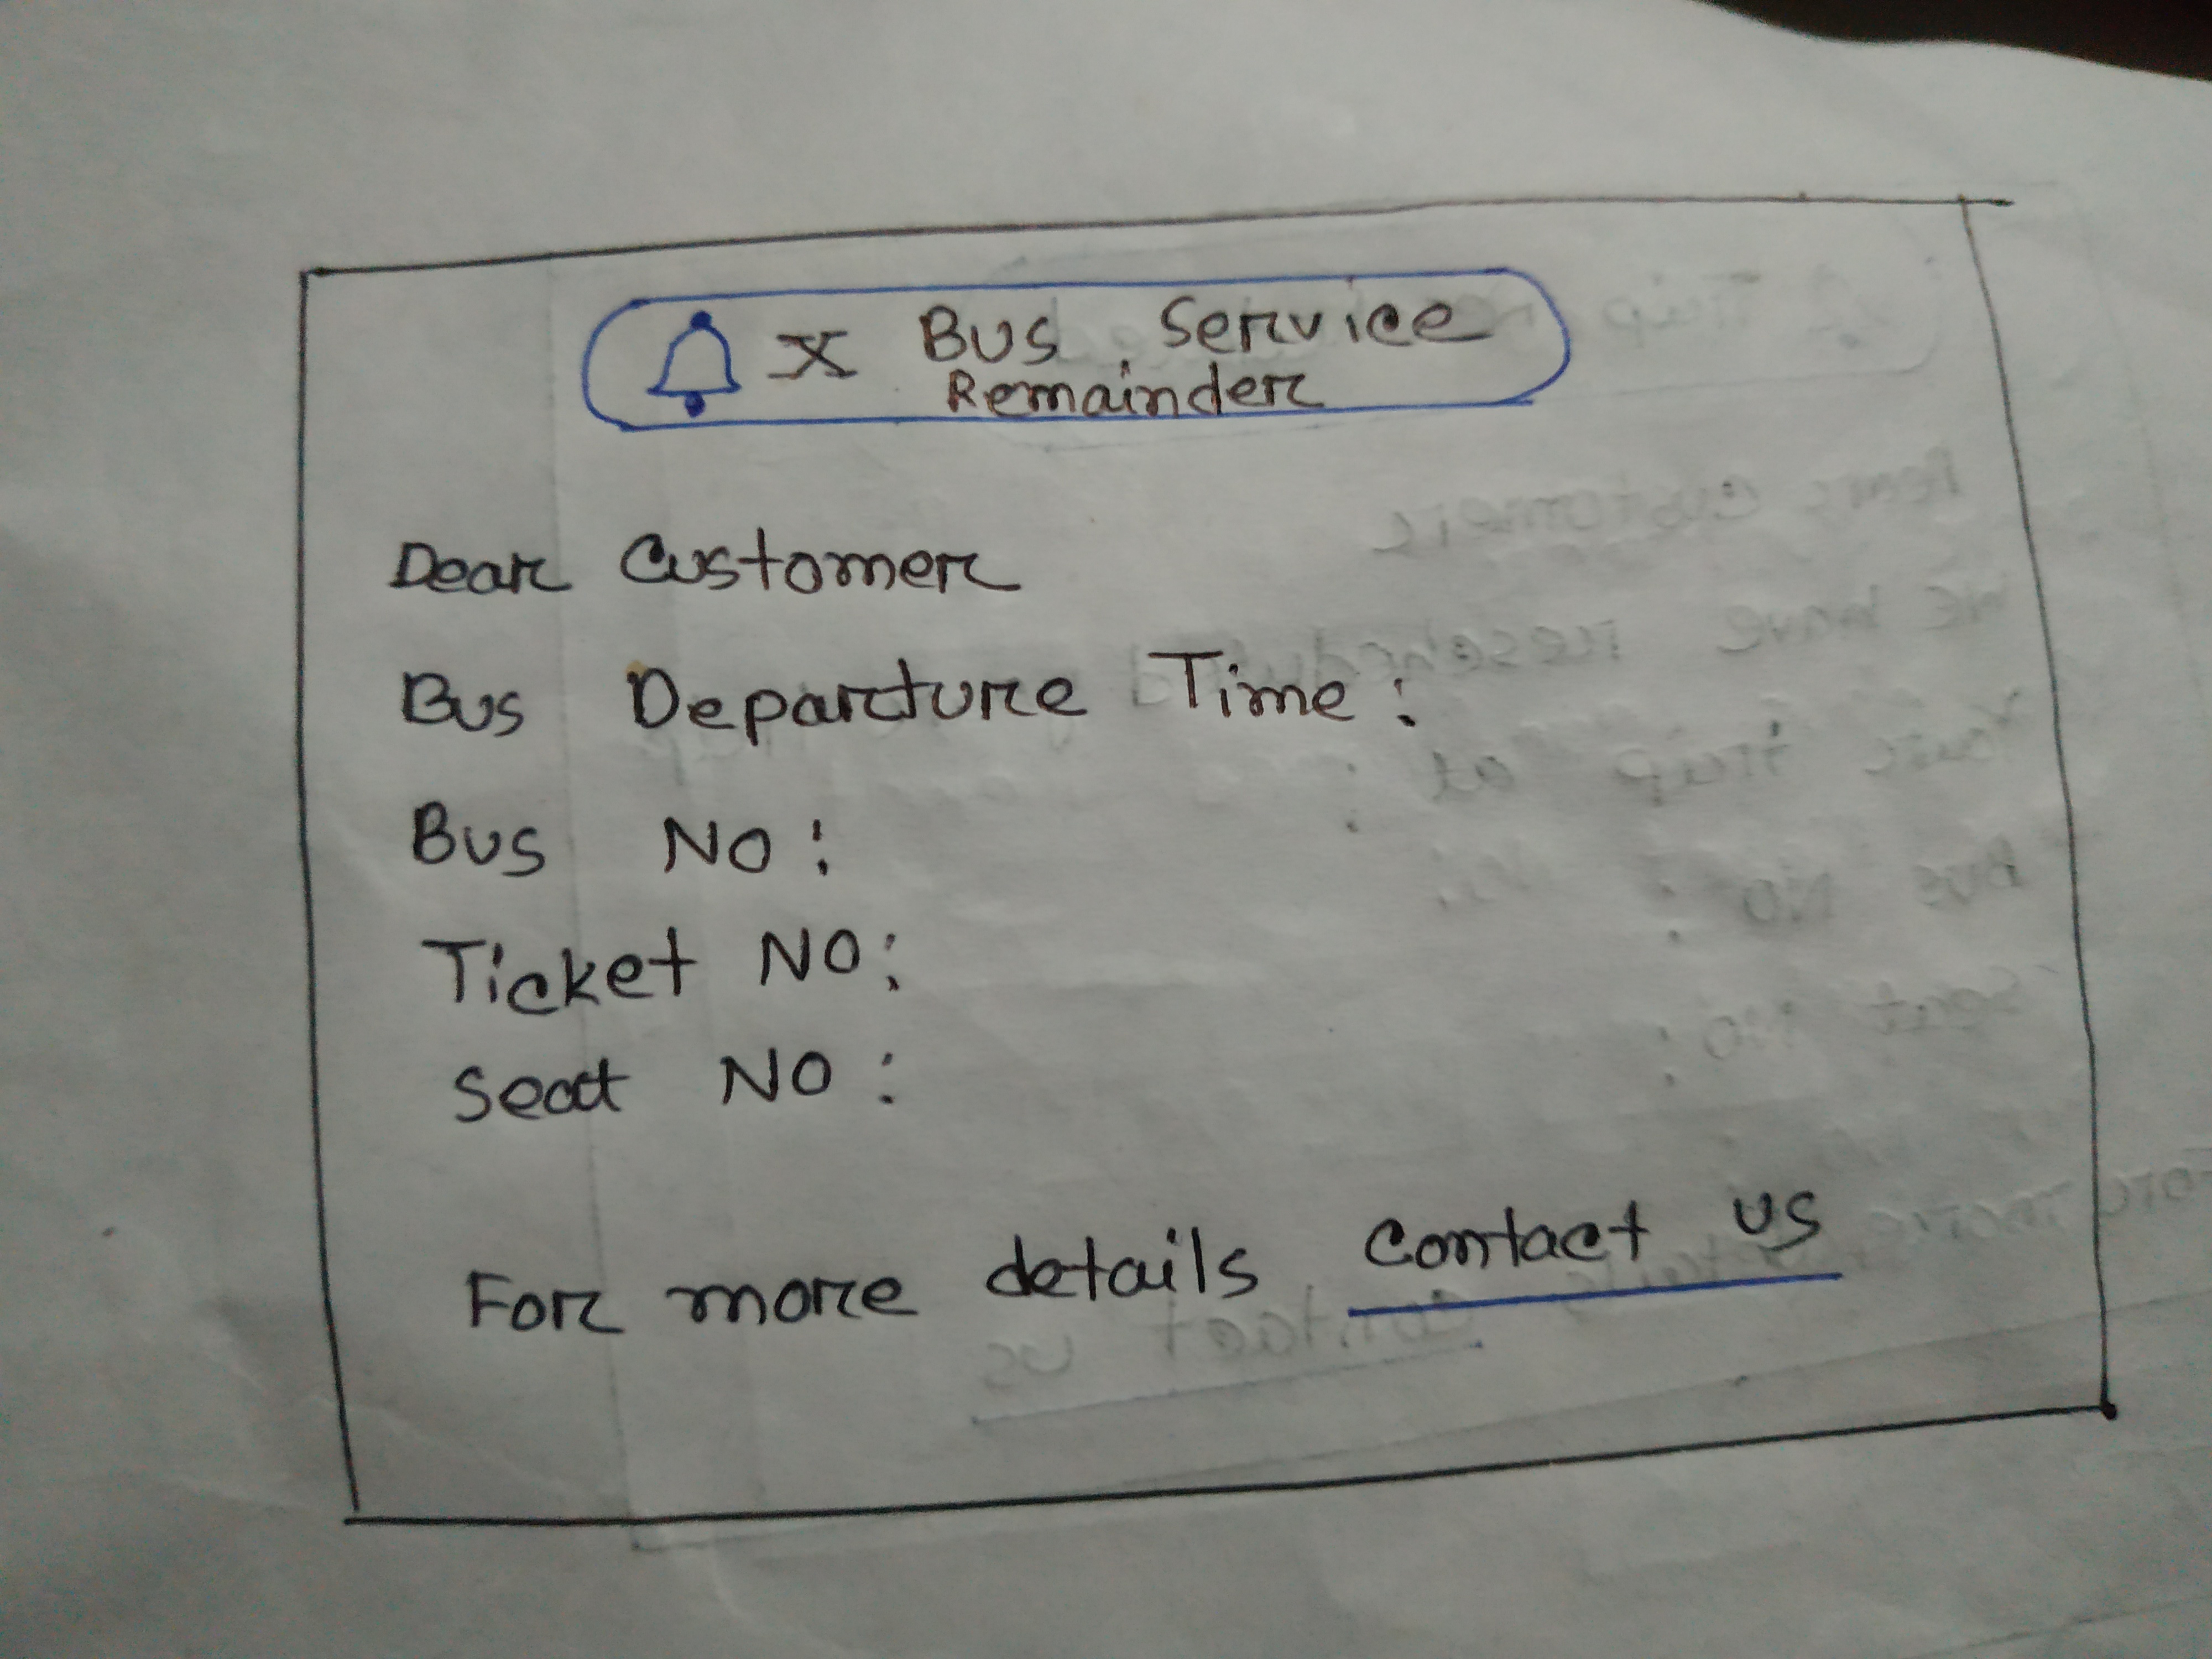 X Bus Service
Remainder
Dear Customer
Bus Departure Time:
Bus No:
Ticket No:
Seat No:
For more details contact us